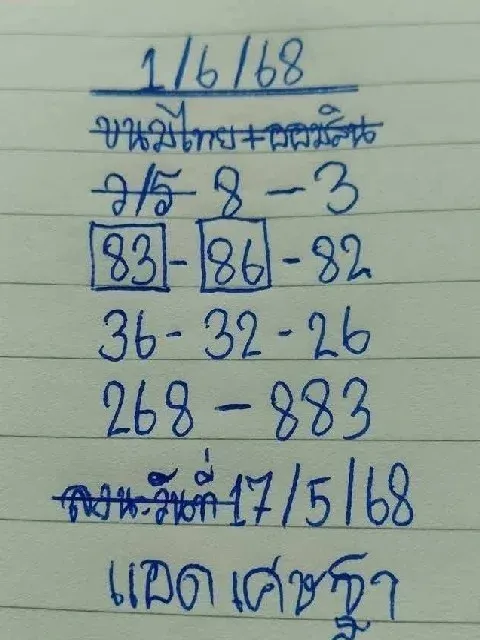 1/6/68
ขนมไทย+ออมสิน
ว/ร 8-3
83-86-82
36-32-26
268-883
วันที่ 17/5/68
แอด เศษฐา